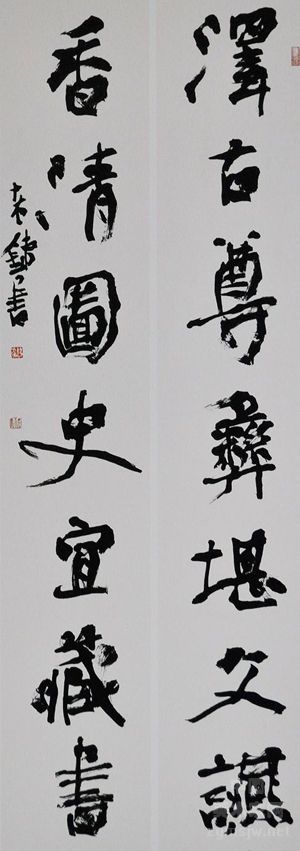 澤古尊彝堪文讌
香晴圖史宜藏書